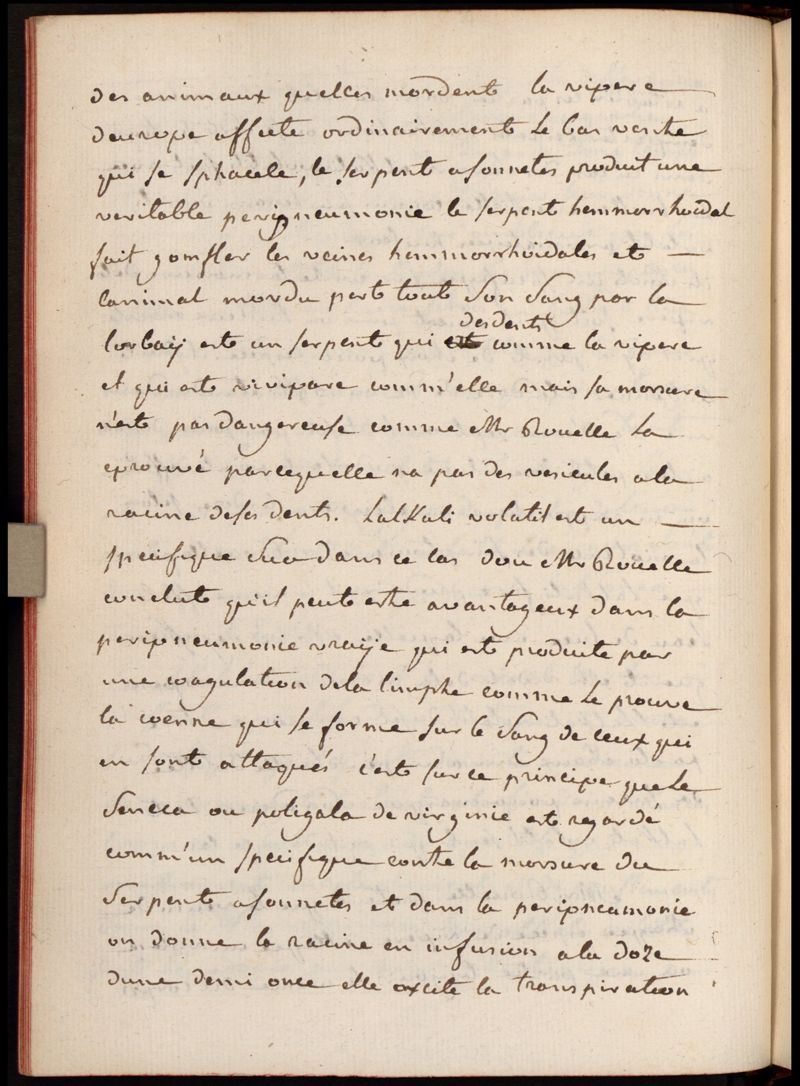 des animaux quelles mordent la vipere
deurope affecte ordinairement le bas ventre
qui se sphacele, le serpent asonnetes produit une
veritable peripneumonie le serpent hemmorrhoidal
fait gonfler les veines hemmorrhoidales et —
lanimal mordu perd tout son sang par la
desdents
lorbaij est un serpent qui comme la vipere
et qui est vivipare comm'elle mais sa morsure
n'est pas dangereuse comme Mr Rouelle la
eprouvé parcequelle na pas des vesicules ala
racine deses dents. Lalkali volatil est un —
specifique dans ce cas dou Mr Rouelle
conclut quil peut estre avantageux dans la
peripneumonie vraije qui est produite par
une coagulation dela limphe comme le prouve
la coenne qui se forme sur le sang de ceux qui
en sont attaqués c'est sur ce principe que le
Seneca ou poligala de virginie est regardé
comm'un specifique contre la morsure du
Serpent asonnetes et dans la peripneumonie
on donne la racine en infusion ala doze
dune demi once elle excite la transpiration